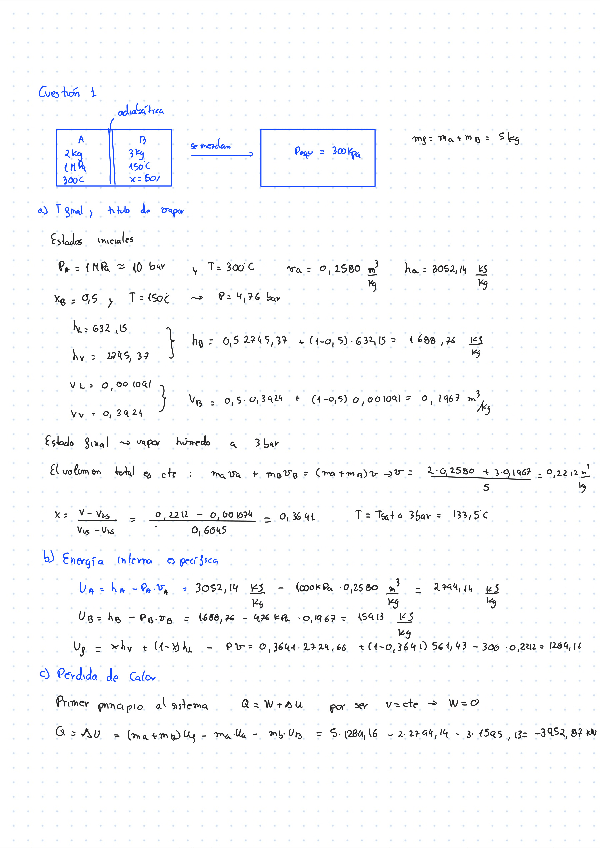 Cuestión 1
adiabática
A B
2kg 3kg
1 MPa 150°C
300°C x = 50%
se mezclan
Pequ = 300 kPa
mf = ma + mB = 5 kg
a) T final, título de vapor
Estados iniciales
PA = 1 MPa ≈ 10 bar y T = 300°C va = 0,2580 m³/kg ha = 3052,14 kJ/kg
xB = 0,5 y T = 150°C → P = 4,76 bar
hL = 632,15
hv = 2745,37
hB = 0,5 2745,37 + (1-0,5)·632,15 = 1688,76 kJ/kg
vL = 0,001091
vv = 0,3924
vB = 0,5·0,3924 + (1-0,5) 0,001091 = 0,1967 m³/kg
Estado final → vapor húmedo a 3 bar
El volumen total es cte : mava + mBvB = (ma+mB)v → v = (2·0,2580 + 3·0,1967)/5 = 0,2212 m³/kg
x = (v - vLs)/(vvs - vLs) = (0,2212 - 0,001074)/0,6045 = 0,3641 T = Tsat a 3bar = 133,5°C
b) Energía interna específica
UA = hA - PA·vA = 3052,14 kJ/kg - 1000kPa·0,2580 m³/kg = 2794,14 kJ/kg
UB = hB - PB·vB = 1688,76 - 476 kPa·0,1967 = 1541,3 kJ/kg
Uf = xhv + (1-x)hL - Pv = 0,3641·2724,66 + (1-0,3641) 561,43 - 300·0,2212 = 1284,16
c) Perdida de Calor
Primer principio al sistema Q = W + ΔU por ser v = cte → W = 0
Q = ΔU = (ma + mb)Uf - maUa - mbUB = 5·1284,16 - 2·2794,14 - 3·1595,13 = -3952,87